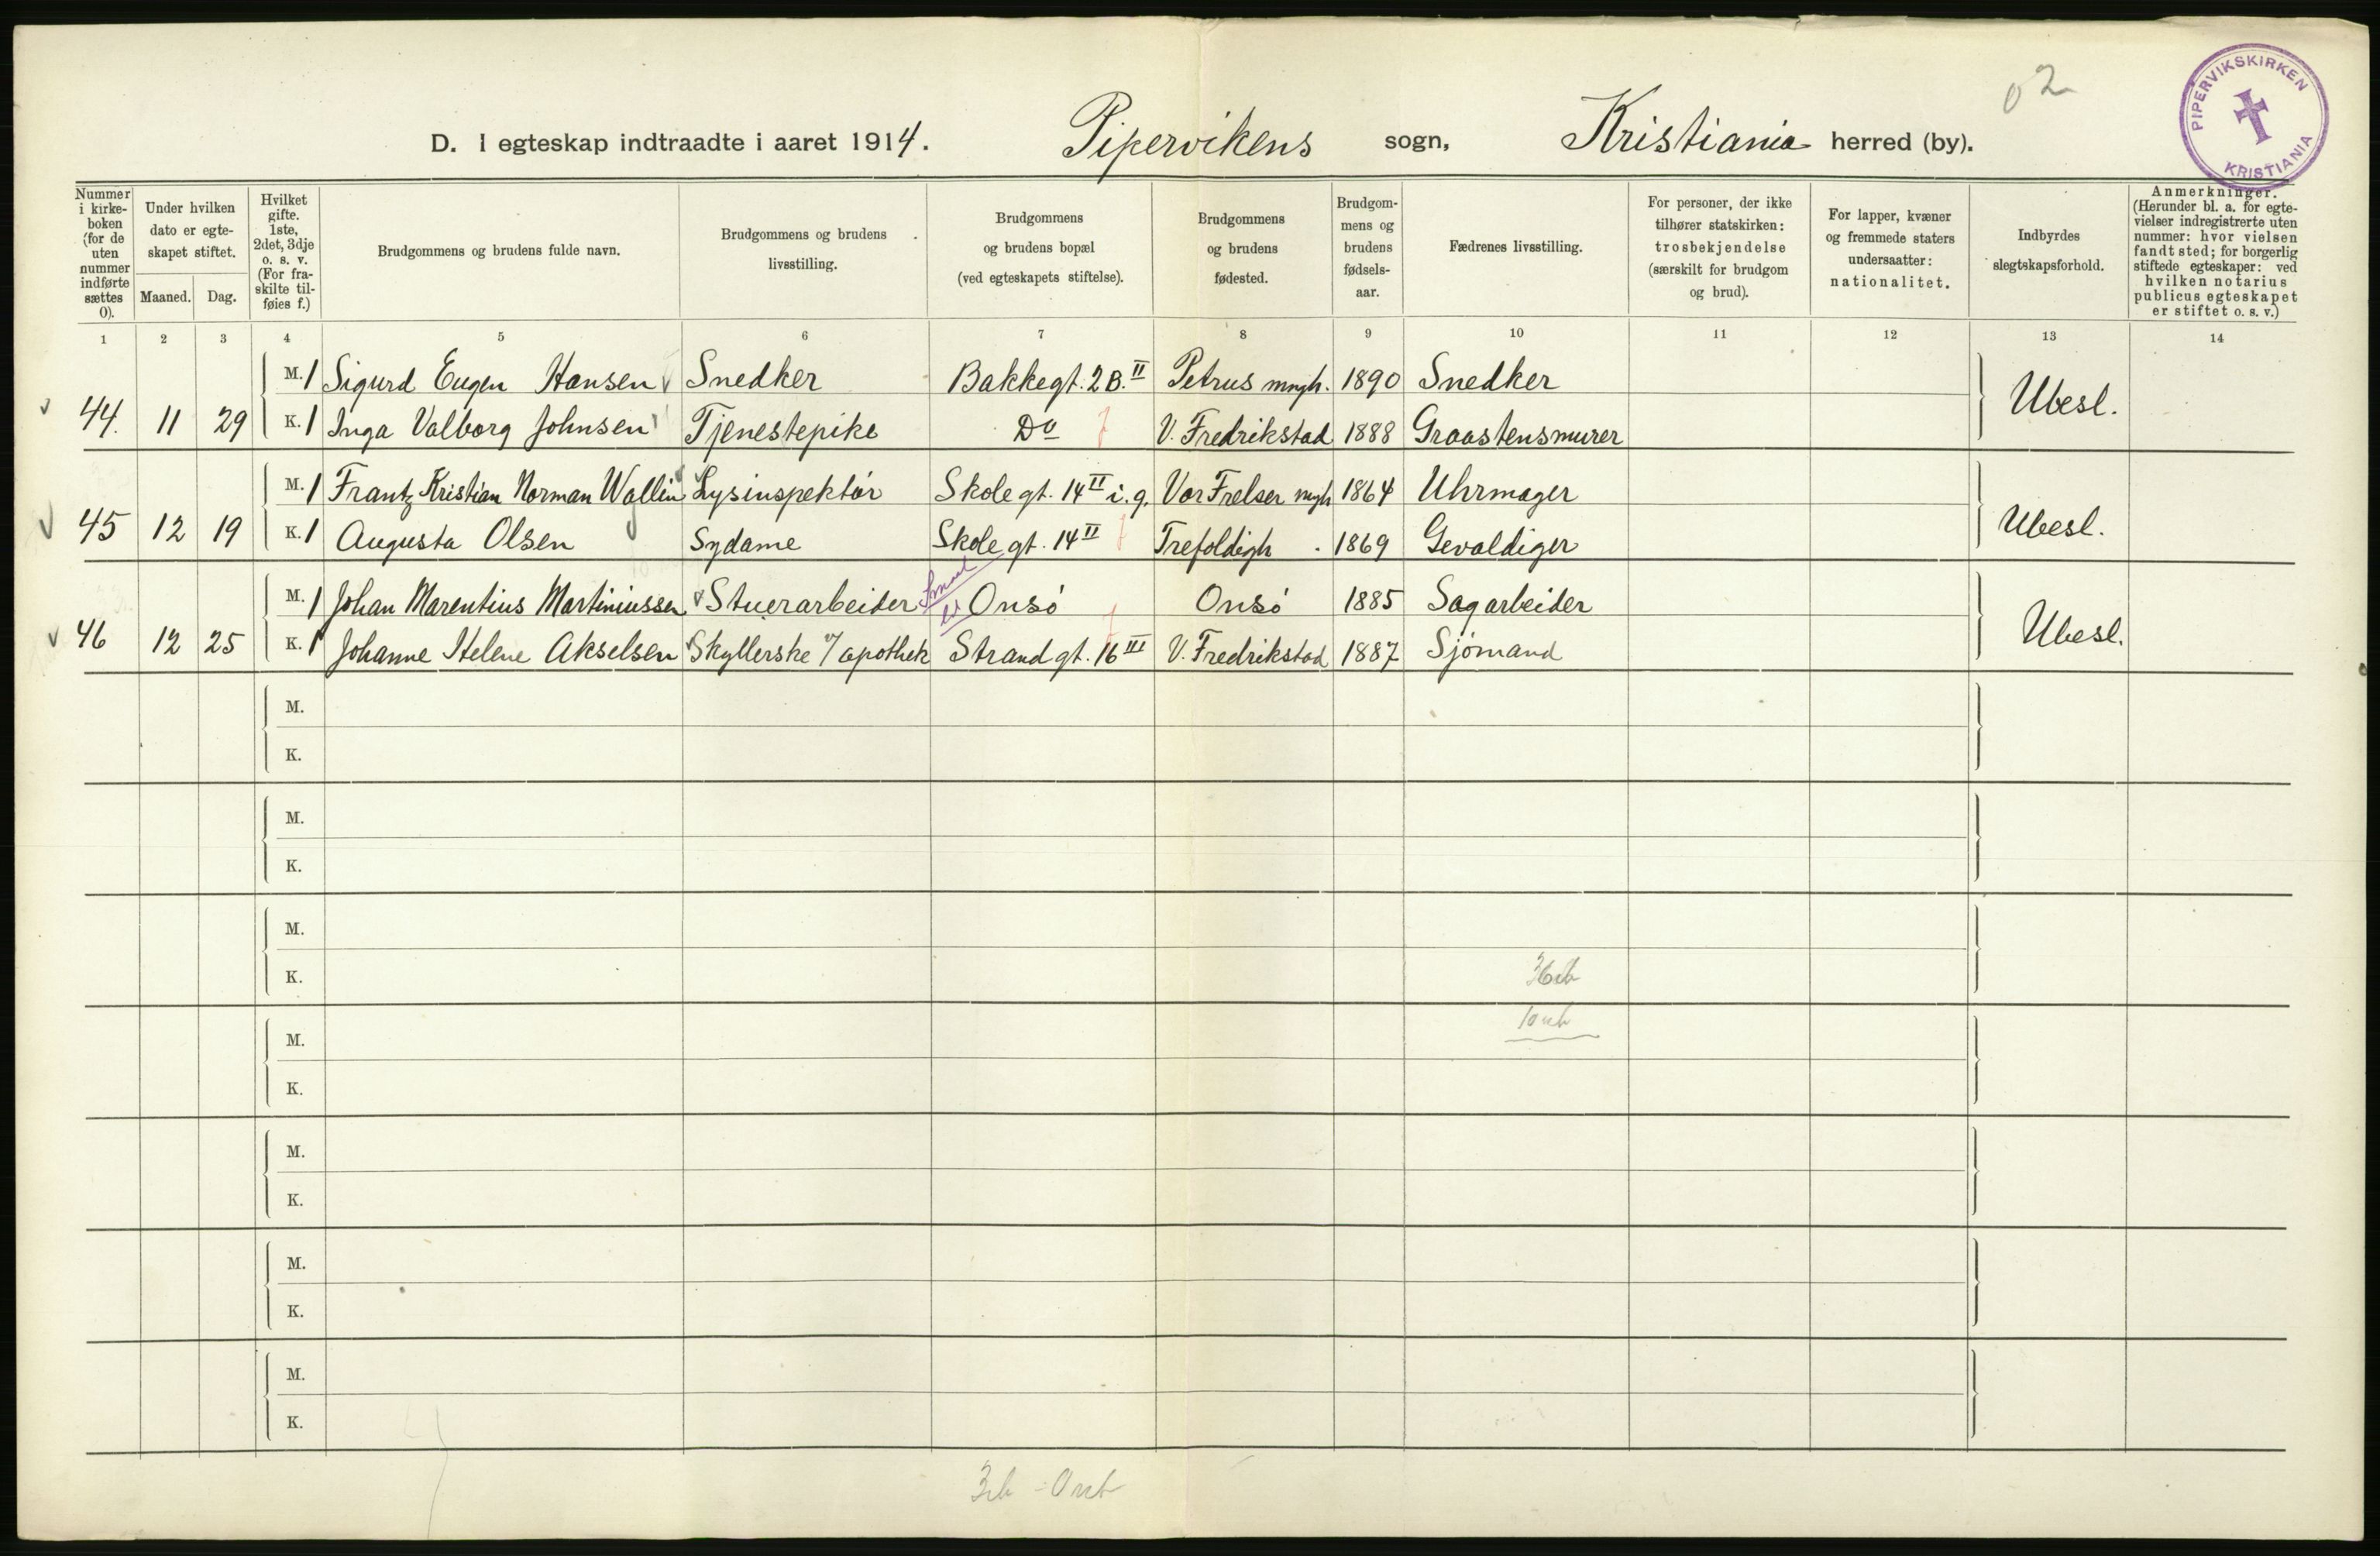 02
PIPERVIKSKIRKEN
KRISTIANIA
D. I egteskap indtraadte i aaret 1914. Pipervikens sogn, Kristiania herred (by).
Nummer i kirke-boken (for de uten nummer indførte sættes 0).
Under hvilken dato er egte-skapet stiftet.
Maaned. Dag.
Hvilket gifte. 1ste, 2det, 3dje o. s. v. (For fra-skilte til-føies f.)
Brudgommens og brudens fulde navn.
Brudgommens og brudens livsstilling.
Brudgommens og brudens bopæl (ved egteskapets stiftelse).
Brudgommens og brudens fødested.
Brudgom-mens og brudens fødsels-aar.
Fædrenes livsstilling.
For personer, der ikke tilhører statskirken: trosbekjendelse (særskilt for brudgom og brud).
For lapper, kvæner og fremmede staters undersaatter: nationalitet.
Indbyrdes slegtskapsforhold.
Anmerkninger. (Herunder bl. a. for egte-vielser indregistrerte uten nummer: hvor vielsen fandt sted; for borgerlig stiftede egteskaper: ved hvilken notarius publicus egteskapet er stiftet o. s. v.)
1 2 3 4 5 6 7 8 9 10 11 12 13 14
M. 1 Sigurd Eugen Hansen Snedker Bakkegt. 2 B. II Petrus mngh. 1890 Snedker
44. 11 29 K. 1 Inga Valborg Johnsen Tjenestepike Do V. Fredrikstad 1888 Graastensmurer Ubesl.
M. 1 Frantz Kristian Norman Wallin Lysinspektør Skolegt. 14 II i. g. Vor Frelser mgh 1864 Uhrmager
45 12 19 K. 1 Augusta Olsen Sydame Skolegt. 14 II Trefoldigh. 1869 Gevaldiger Ubesl.
M. 1 Johan Marentius Martiniussen Stuerarbeider Onsö Onsö 1885 Sagarbeider
46 12 25 K. 1 Johanne Helene Akselsen Skyllerske v/ apothek Strandgt. 16 III V. Fredrikstad 1887 Sjömand Ubesl.
M.
K.
M.
K.
M.
K.
M.
K.
M.
K.
M.
K.
M.
K.